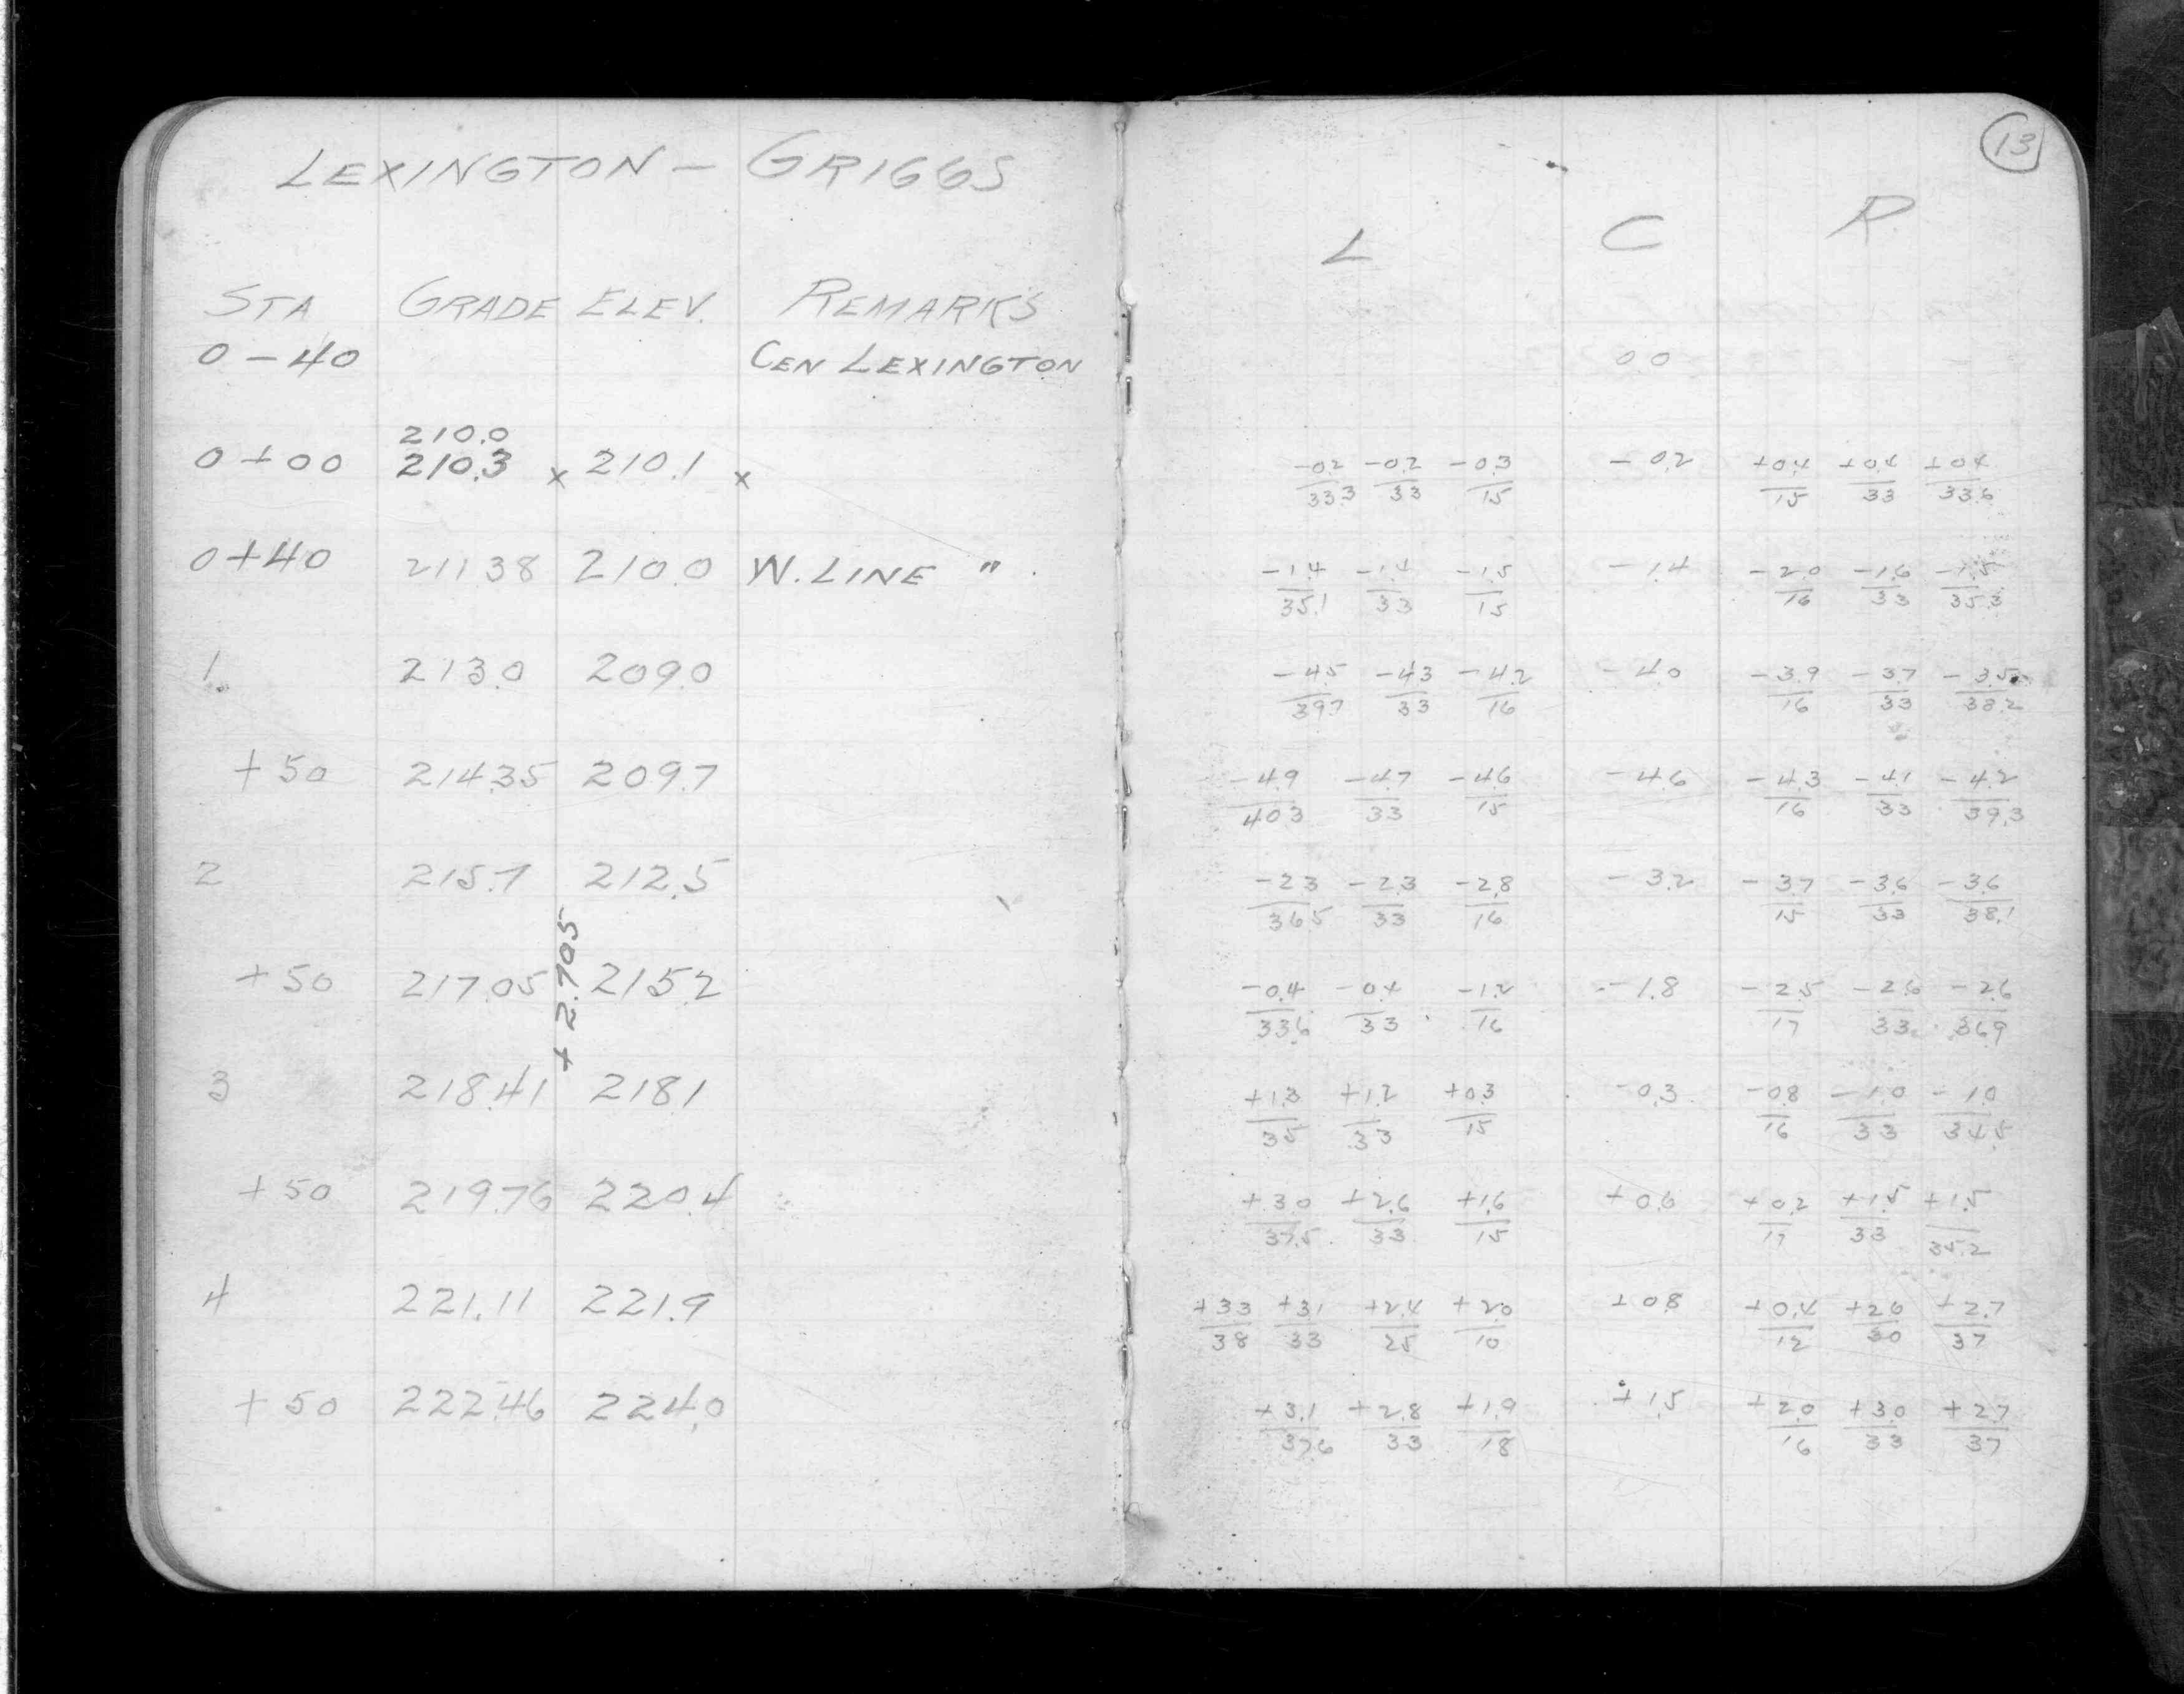 LEXINGTON - GRIGGS
STA GRADE ELEV. REMARKS
0 - 40 CEN LEXINGTON
210.0
0 + 00 210.3 x 210.1 x
0 + 40 211 38 210.0 W. LINE "
1 213.0 209.0
+ 50 214.35 209.7
2 215.7 212.5
+ 50 217.05 215.2
+ 2.705
3 218.41 218.1
+ 50 219.76 220.4
4 221.11 221.9
+ 50 222.46 224.0
13
L C R
0.0
-0.2 -0.2 -0.3 - 0.2 +0.4 +0.4 +0.4
33.3 33 15 15 33 33.6
-1.4 -1.4 -1.5 - 1.4 -2.0 -1.6 -1.5
35.1 33 15 16 33 35.3
-4.5 -4.3 -4.2 - 4.0 -3.9 -3.7 -3.5
39.7 33 16 16 33 38.2
-4.9 -4.7 -4.6 - 4.6 -4.3 -4.1 -4.2
40.3 33 15 16 33 39.3
-2.3 -2.3 -2.8 - 3.2 -3.7 -3.6 -3.6
36.5 33 16 15 33 38.1
-0.4 -0.4 -1.2 - 1.8 -2.5 -2.6 -2.6
33.6 33 16 17 33 36.9
+1.3 +1.2 +0.3 - 0.3 -0.8 -1.0 -1.0
35 33 15 16 33 34.5
+3.0 +2.6 +1.6 + 0.6 +0.2 +1.5 +1.5
37.5 33 15 17 33 35.2
+3.3 +3.1 +2.4 +2.0 + 0.8 +0.4 +2.6 +2.7
38 33 25 10 12 30 37
+3.1 +2.8 +1.9 + 1.5 +2.0 +3.0 +2.7
37.6 33 18 16 33 37